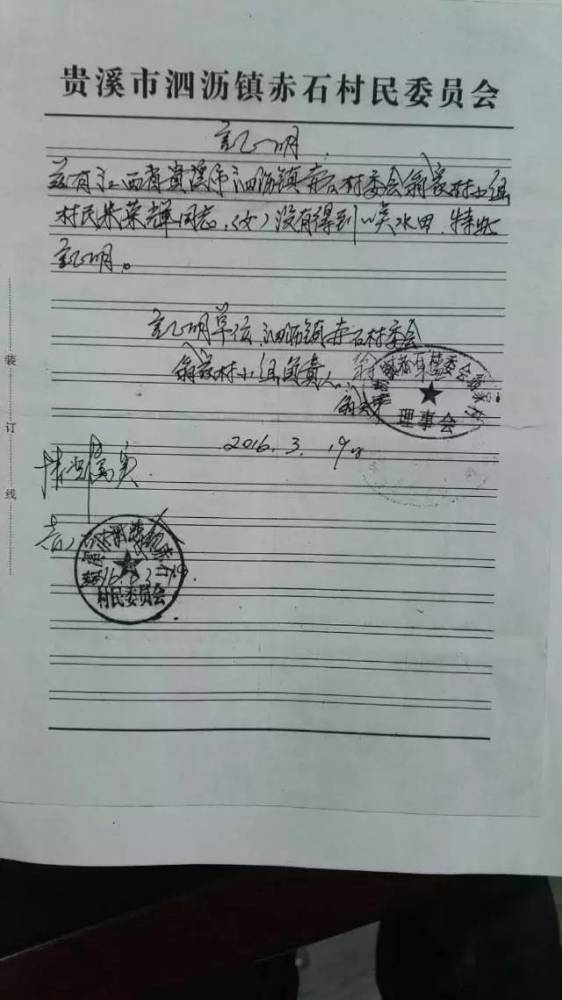 贵溪市泗沥镇赤石村民委员会
证明
兹有江西省贵溪市泗沥镇赤石村委会翁家村小组
村民 菜 同志.(女)没有得到 水田.特此
证明。
证明单位.泗沥镇赤石村委会
翁家村小组负责人.
理事会
2016.3.19日
情况属实
村民委员会
装
订
线